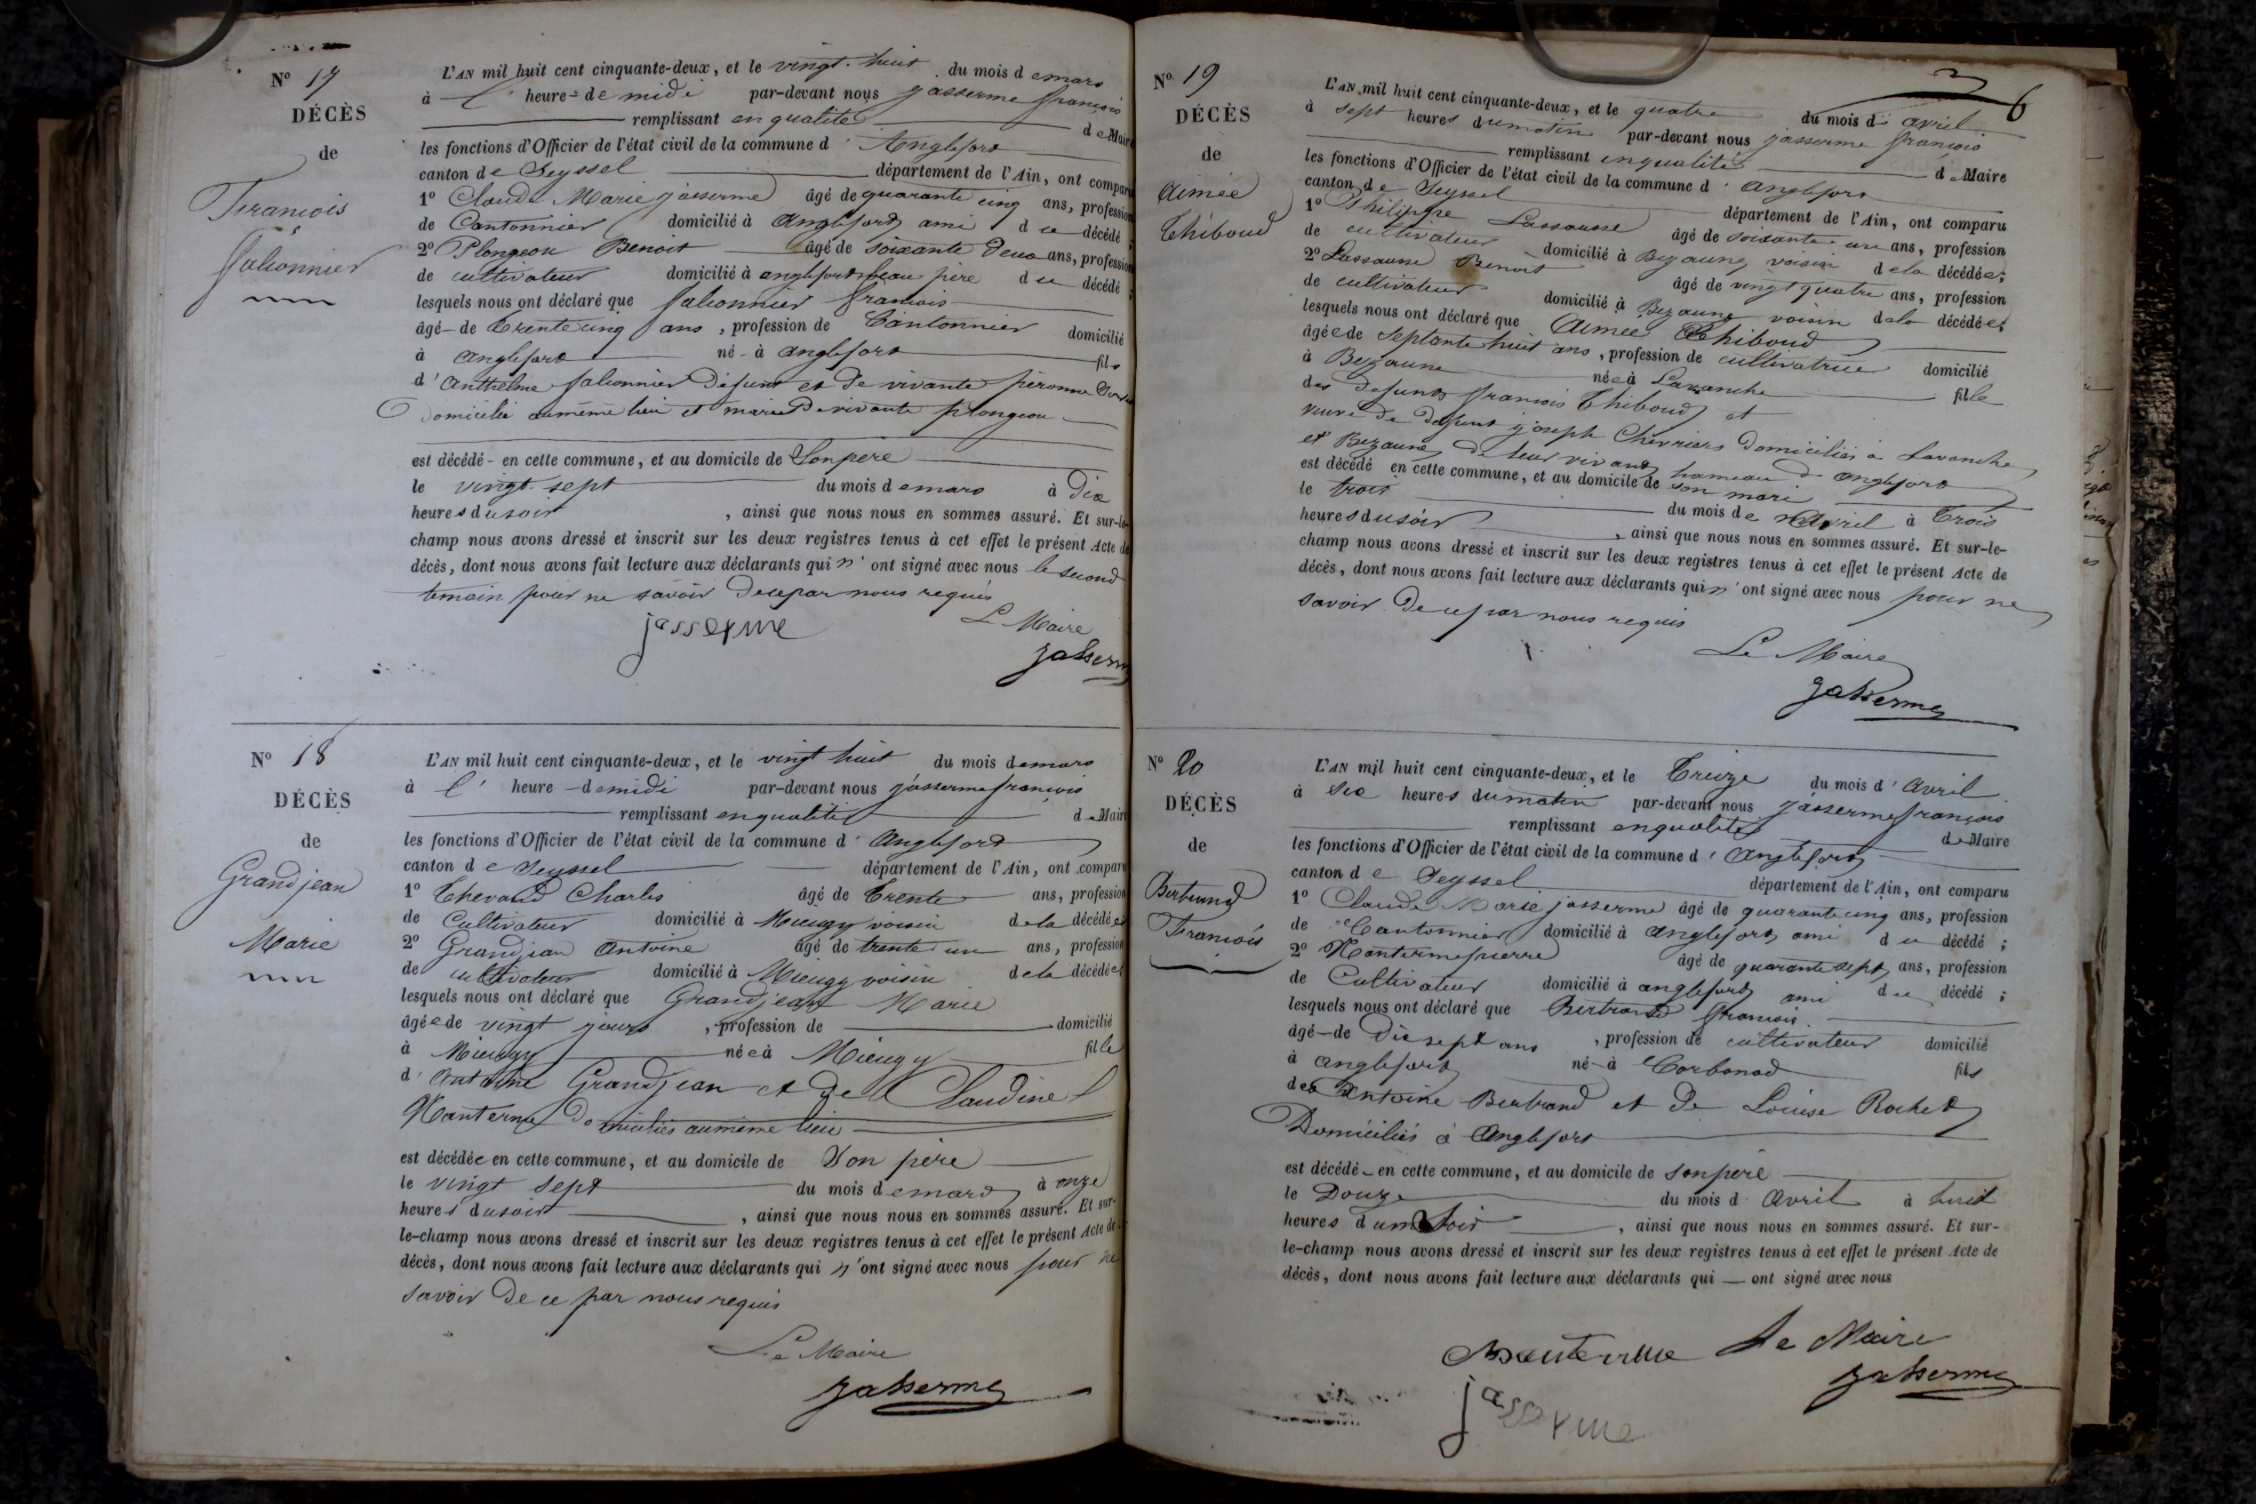 N° 17
DÉCÈS
de
François
Jalionnier
L'AN mil huit cent cinquante-deux, et le vingt-huit du mois de mars
à l' heure de midi par-devant nous Jasserme françois
remplissant en qualité de Maire
les fonctions d'Officier de l'état civil de la commune d' Anglefort
canton de Seyssel département de l'Ain, ont comparu
1° Claude Marie Jasserme âgé de quarante cinq ans, profession
de Cantonnier domicilié à Anglefort ami du décédé ;
2° Plongeon Benoit âgé de soixante deux ans, profession
de cultivateur domicilié à anglefort beau père du décédé ;
lesquels nous ont déclaré que Jalionnier françois
âgé de trente cinq ans, profession de Cantonnier domicilié
à anglefort né à anglefort fils
d' Anthelme Jalionnier défunt et de vivante péronne
domicilié au même lieu et marié de vivante plongeon
est décédé en cette commune, et au domicile de Son père
le vingt sept du mois de mars à Dix
heures du soir, ainsi que nous nous en sommes assuré. Et sur-le-
champ nous avons dressé et inscrit sur les deux registres tenus à cet effet le présent Acte de
décès, dont nous avons fait lecture aux déclarants qui n'ont signé avec nous le second
temoin pour ne savoir de ce par nous requis
jasserme Le Maire
Jasserme
N° 18
DÉCÈS
de
Grandjean
Marie
L'AN mil huit cent cinquante-deux, et le vingt huit du mois de mars
à l' heure de midi par-devant nous jasserme françois
remplissant en qualité de Maire
les fonctions d'Officier de l'état civil de la commune d' Anglefort
canton de Seyssel département de l'Ain, ont comparu
1° Chevaud Charles âgé de trente ans, profession
de Cultivateur domicilié à Mieugy voisin de la décédée
2° Grandjean Antoine âgé de trente un ans, profession
de cultivateur domicilié à Mieugy voisin de la décédée
lesquels nous ont déclaré que Grandjean Marie
âgée de vingt jours, profession de domicilié
à Mieugy née à Mieugy fille
d' Antoine Grandjean et de Claudine
Manterme Domiciliés au même lieu
est décédée en cette commune, et au domicile de Son père
le vingt sept du mois de mars à onze
heures du soir, ainsi que nous nous en sommes assuré. Et sur-
le-champ nous avons dressé et inscrit sur les deux registres tenus à cet effet le présent Acte de
décès, dont nous avons fait lecture aux déclarants qui n'ont signé avec nous pour ne
savoir de ce par nous requis
Le Maire
Jasserme
6
N° 19
DÉCÈS
de
Aimée
Thiboud
L'AN mil huit cent cinquante-deux, et le quatre du mois d' avril
à sept heures du matin par-devant nous jasserme françois
remplissant en qualité de Maire
les fonctions d'Officier de l'état civil de la commune d' anglefort
canton de Seyssel département de l'Ain, ont comparu
1° Philippe Lassausse âgé de soixante un ans, profession
de cultivateur domicilié à Bezaune, voisin de la décédée ;
2° Lassausse Benoit âgé de vingt quatre ans, profession
de cultivateur domicilié à Bezaune voisin de la décédée ;
lesquels nous ont déclaré que Aimée Thiboud
âgée de septante huit ans, profession de cultivatrice domicilié
à Bezaune née à Lavanche fille
des defunts françois Thiboud et
veuve de défunt joseph Chevriers Domiciliés à Lavanche
et Bezaune de leur vivant hameau d' anglefort
est décédé en cette commune, et au domicile de son mari
le trois du mois de avril à Trois
heures du soir, ainsi que nous nous en sommes assuré. Et sur-le-
champ nous avons dressé et inscrit sur les deux registres tenus à cet effet le présent Acte de
décès, dont nous avons fait lecture aux déclarants qui n'ont signé avec nous pour ne
savoir de ce par nous requis
Le Maire
Jasserme
N° 20
DÉCÈS
de
Bertrand
François
L'AN mil huit cent cinquante-deux, et le Treize du mois d' Avril
à six heures du matin par-devant nous jasserme françois
remplissant en qualité de Maire
les fonctions d'Officier de l'état civil de la commune d' Anglefort
canton de Seyssel département de l'Ain, ont comparu
1° Claude Marie jasserme âgé de quarante cinq ans, profession
de Cantonnier domicilié à anglefort ami du décédé ;
2° Manterme pierre âgé de quarante sept ans, profession
de Cultivateur domicilié à anglefort ami du décédé ;
lesquels nous ont déclaré que Bertrand françois
âgé de dix sept ans, profession de cultivateur domicilié
à anglefort né à Corbonod fils
des Antoine Bertrand et de Louise Rochet
Domiciliés à Anglefort
est décédé en cette commune, et au domicile de son père
le Douze du mois d' Avril à huit
heures du soir, ainsi que nous nous en sommes assuré. Et sur-
le-champ nous avons dressé et inscrit sur les deux registres tenus à cet effet le présent Acte de
décès, dont nous avons fait lecture aux déclarants qui — ont signé avec nous
Manterme Le Maire
Jasserme
jasserme